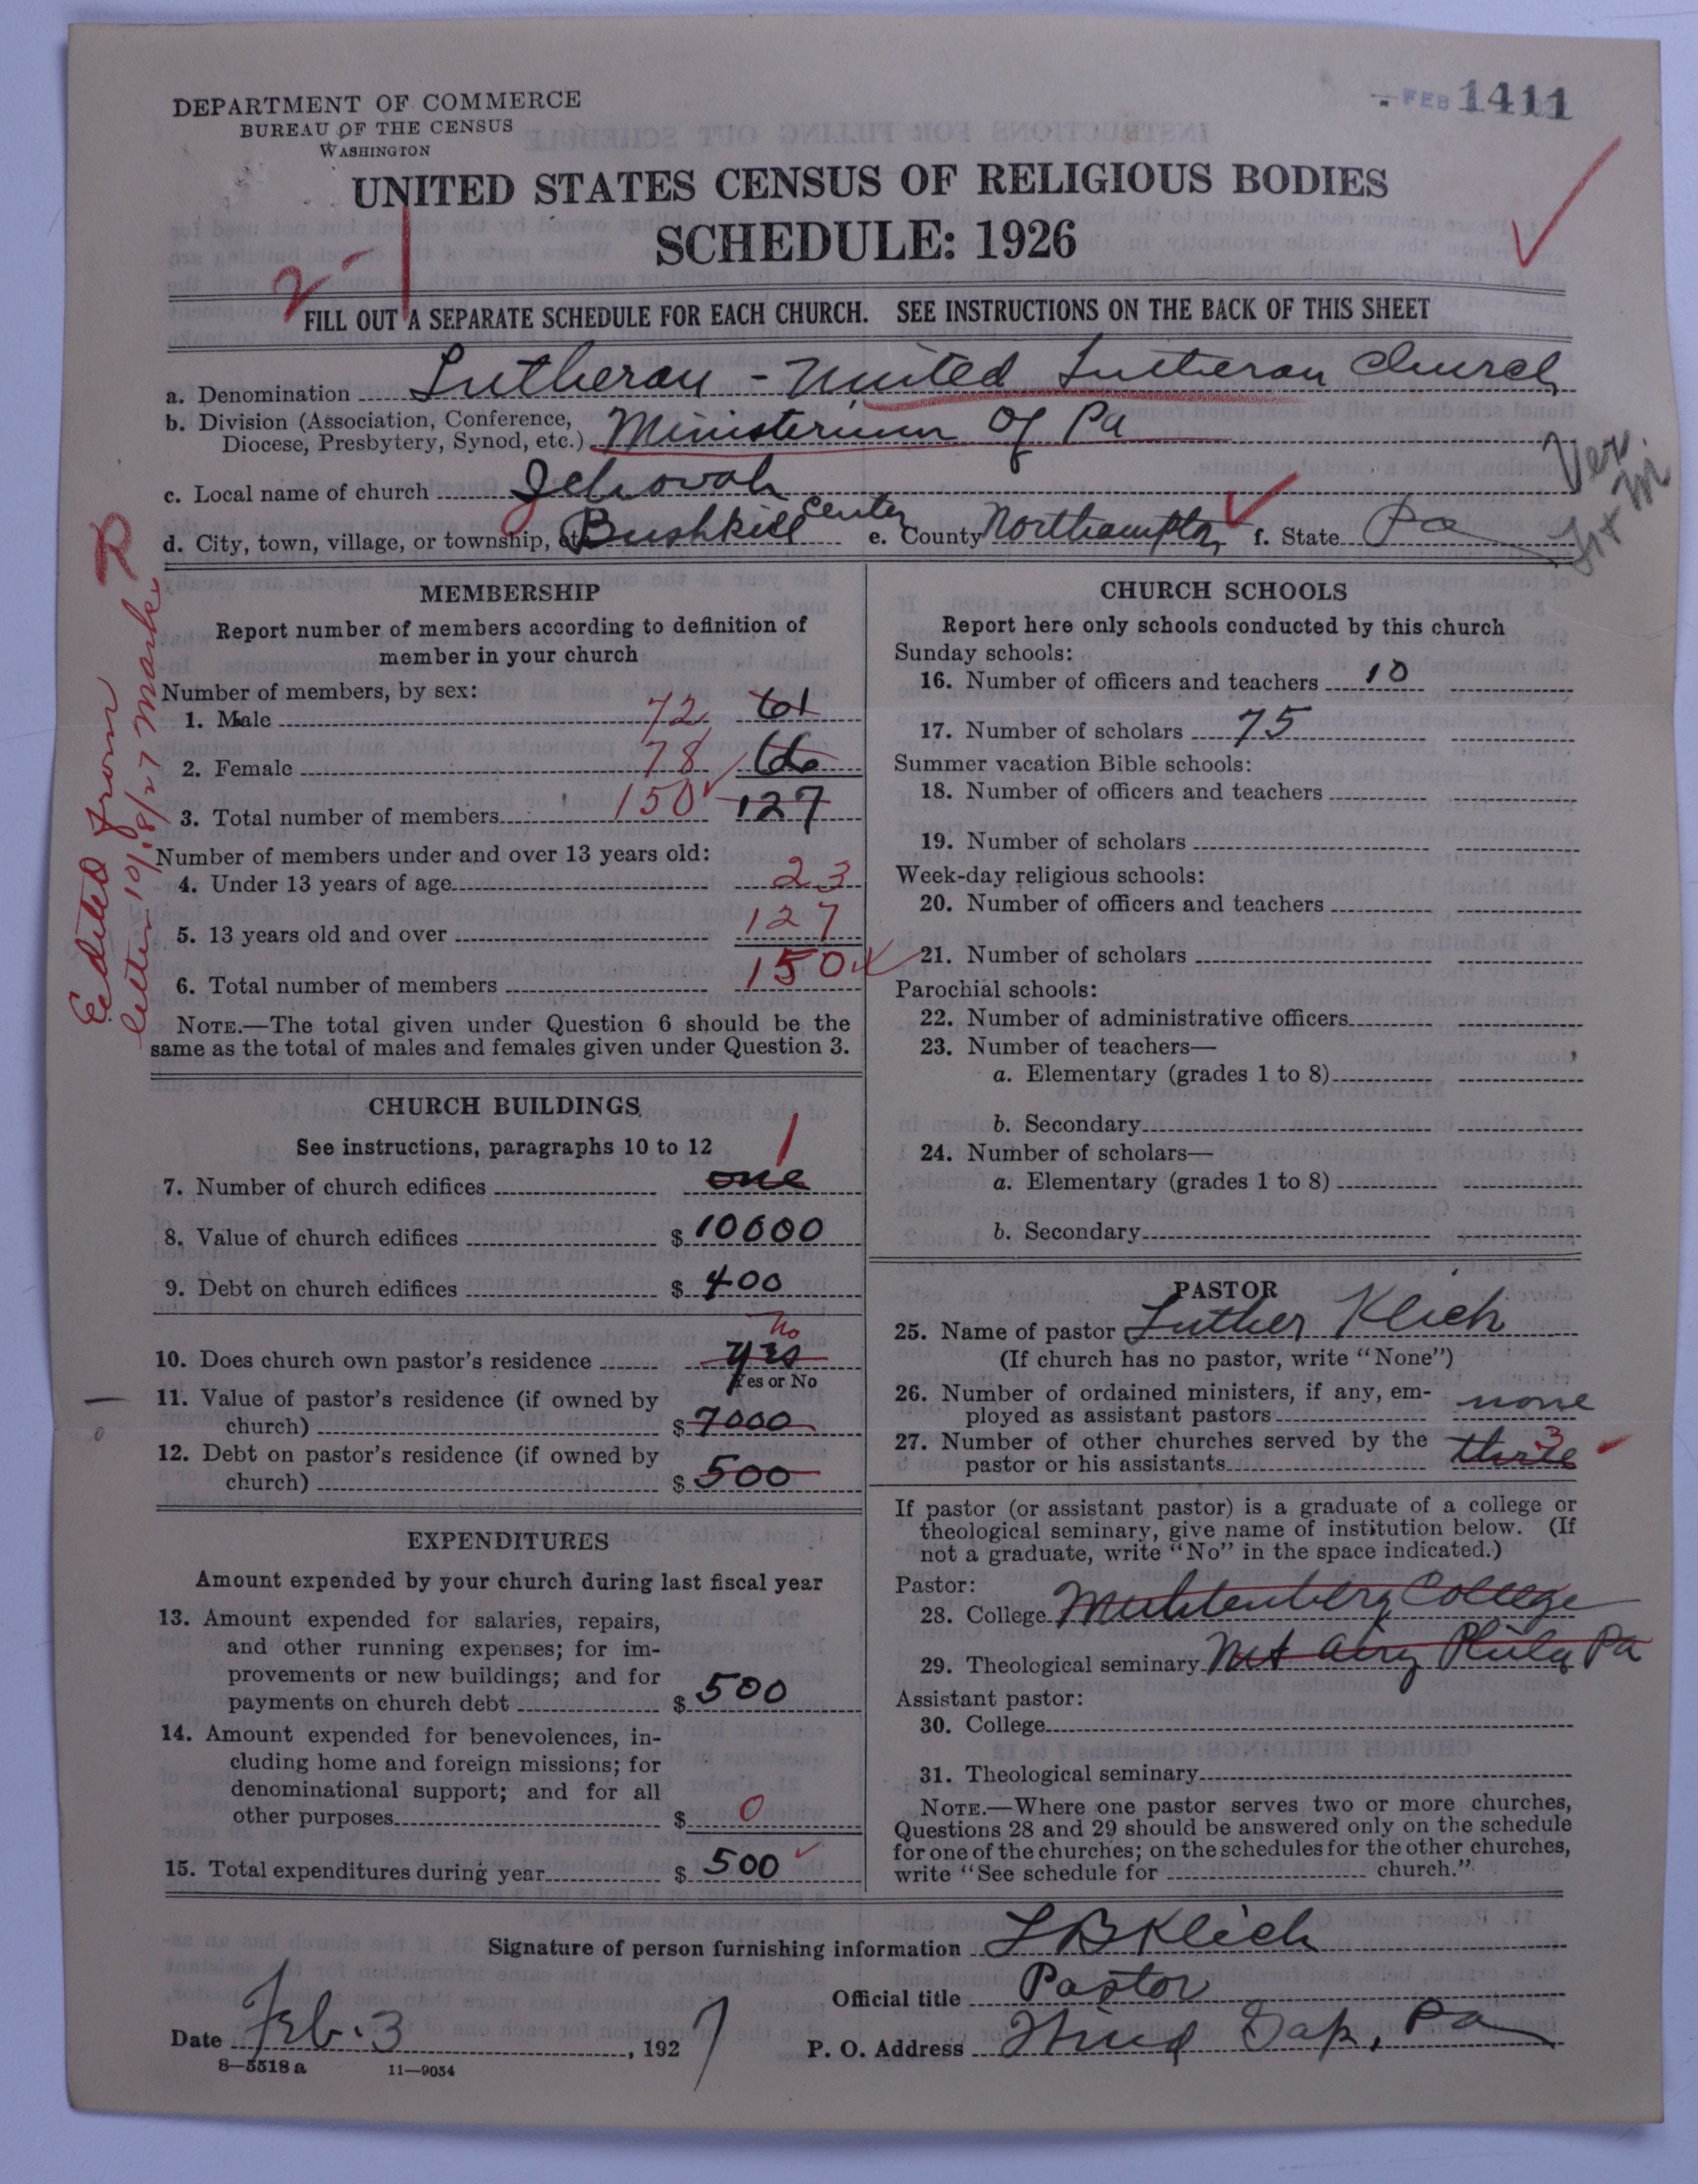 DEPARTMENT OF COMMERCE
BUREAU OF THE CENSUS
WASHINGTON
FEB 1411
UNITED STATES CENSUS OF RELIGIOUS BODIES
SCHEDULE: 1926
2-1
FILL OUT A SEPARATE SCHEDULE FOR EACH CHURCH. SEE INSTRUCTIONS ON THE BACK OF THIS SHEET
a. Denomination Lutheran - United Lutheran Church
b. Division (Association, Conference,
Diocese, Presbytery, Synod, etc.) Ministerium of Pa
Ver.
c. Local name of church Jehovah
d. City, town, village, or township, etc. Bushkill Center e. County Northampton f. State Pa
R
Edited from
letter 10/8/27 Marke
MEMBERSHIP
Report number of members according to definition of
member in your church
Number of members, by sex:
1. Male 72 61
2. Female 78 66
3. Total number of members 150 127
Number of members under and over 13 years old:
4. Under 13 years of age 23
5. 13 years old and over 127
6. Total number of members 150
NOTE.—The total given under Question 6 should be the
same as the total of males and females given under Question 3.
CHURCH BUILDINGS
See instructions, paragraphs 10 to 12
7. Number of church edifices one 1
8. Value of church edifices $ 10000
9. Debt on church edifices $ 400
10. Does church own pastor's residence yes no
Yes or No
11. Value of pastor's residence (if owned by
church) $ 7000
12. Debt on pastor's residence (if owned by
church) $ 500
EXPENDITURES
Amount expended by your church during last fiscal year
13. Amount expended for salaries, repairs,
and other running expenses; for im-
provements or new buildings; and for
payments on church debt $ 500
14. Amount expended for benevolences, in-
cluding home and foreign missions; for
denominational support; and for all
other purposes $ 0
15. Total expenditures during year $ 500
CHURCH SCHOOLS
Report here only schools conducted by this church
Sunday schools:
16. Number of officers and teachers 10
17. Number of scholars 75
Summer vacation Bible schools:
18. Number of officers and teachers
19. Number of scholars
Week-day religious schools:
20. Number of officers and teachers
21. Number of scholars
Parochial schools:
22. Number of administrative officers
23. Number of teachers—
a. Elementary (grades 1 to 8)
b. Secondary
24. Number of scholars—
a. Elementary (grades 1 to 8)
b. Secondary
PASTOR
25. Name of pastor Luther Klick
(If church has no pastor, write "None")
26. Number of ordained ministers, if any, em-
ployed as assistant pastors none
27. Number of other churches served by the
pastor or his assistants three 3
If pastor (or assistant pastor) is a graduate of a college or
theological seminary, give name of institution below. (If
not a graduate, write "No" in the space indicated.)
Pastor:
28. College Muhlenberg College
29. Theological seminary Mt Airy Phila Pa
Assistant pastor:
30. College
31. Theological seminary
NOTE.—Where one pastor serves two or more churches,
Questions 28 and 29 should be answered only on the schedule
for one of the churches; on the schedules for the other churches,
write "See schedule for church."
Signature of person furnishing information L B Klick
Official title Pastor
Date Feb. 3, 1927
P. O. Address Wind Gap, Pa
8—5518 a 11—9054